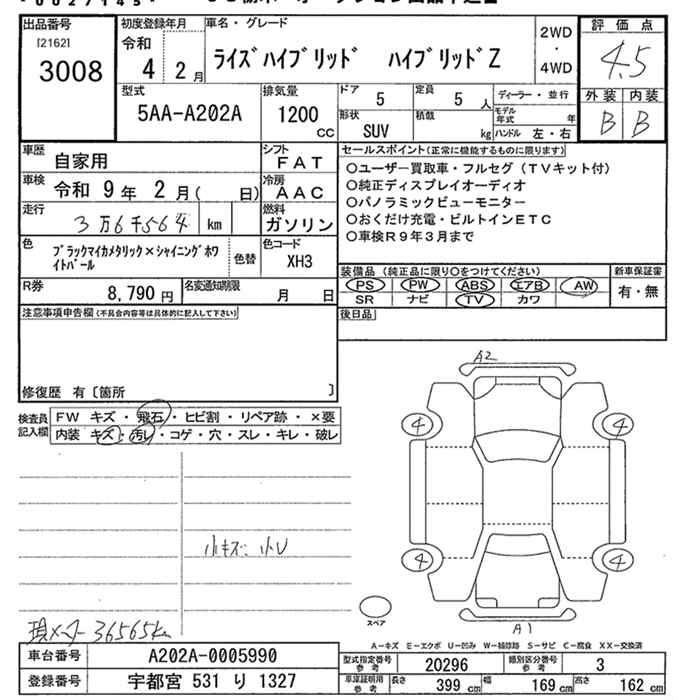 出品番号 初度登録年月 車名・グレード 評価点
[2162]
3008
令和
4 2月
ライズハイブリッド ハイブリッドZ
2WD
・
4WD
4.5
外装 内装
B B
型式 排気量 ドア 定員 ディーラー・並行
5AA-A202A 1200 cc 5 5人
形状 積載 モデル年式 年
SUV kg ハンドル 左・右
車歴 自家用 シフト FAT
車検 令和 9年 2月( 日) 冷房 AAC
走行 3万6千564 km 燃料 ガソリン
色 ブラックマイカメタリック×シャイニングホワ
イトパール 色替 色コード XH3
R券 8,790円 名変通知期限 月 日
セールスポイント(正常に機能するものに限ります)
○ユーザー買取車・フルセグ(TVキット付)
○純正ディスプレイオーディオ
○パノラミックビューモニター
○おくだけ充電・ビルトインETC
○車検R9年3月まで
装備品(純正品に限り○をつけてください) 新車保証書
PS PW ABS エアB AW 有・無
SR ナビ TV カワ
後日品
注意事項申告欄(不具合内容等は具体的に記入して下さい)
修復歴 有〔箇所 〕
検査員
記入欄
FW キズ・飛石・ヒビ割・リペア跡・×要
内装 キズ・汚レ・コゲ・穴・スレ・キレ・破レ
小キズ、小U
現メーター 36565km
A2
4 4
4 4
スペア
A1
A-キズ E-エクボ U-凹み W-補修跡 S-サビ C-腐食 XX-交換済
車台番号 A202A-0005990
登録番号 宇都宮 531 り 1327
型式指定番号 参考 20296 類別区分番号 参考 3
車庫証明用 参考 長さ 399 cm 幅 169 cm 高さ 162 cm